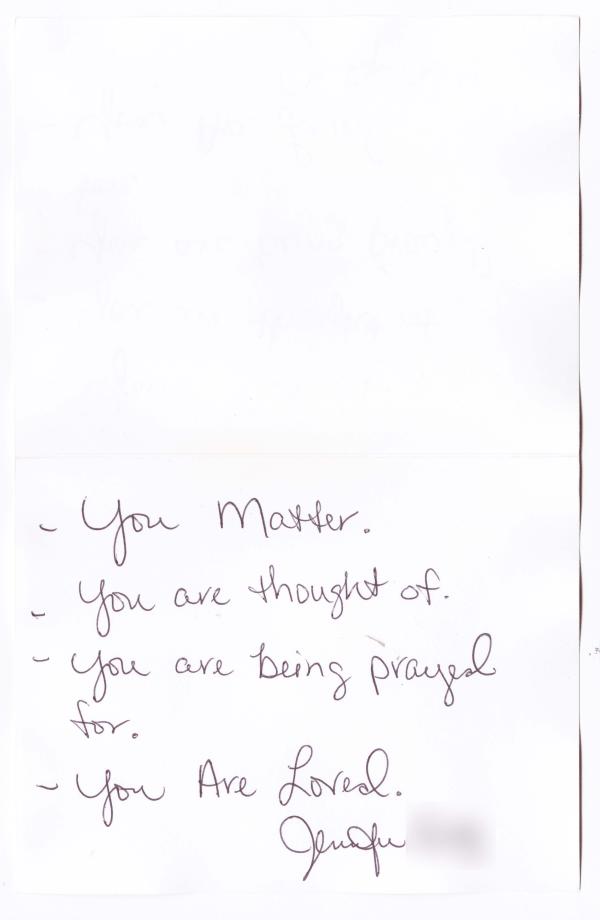 - You Matter.
- You are thought of.
- You are being prayed
for.
- You Are Loved.
Jennifer